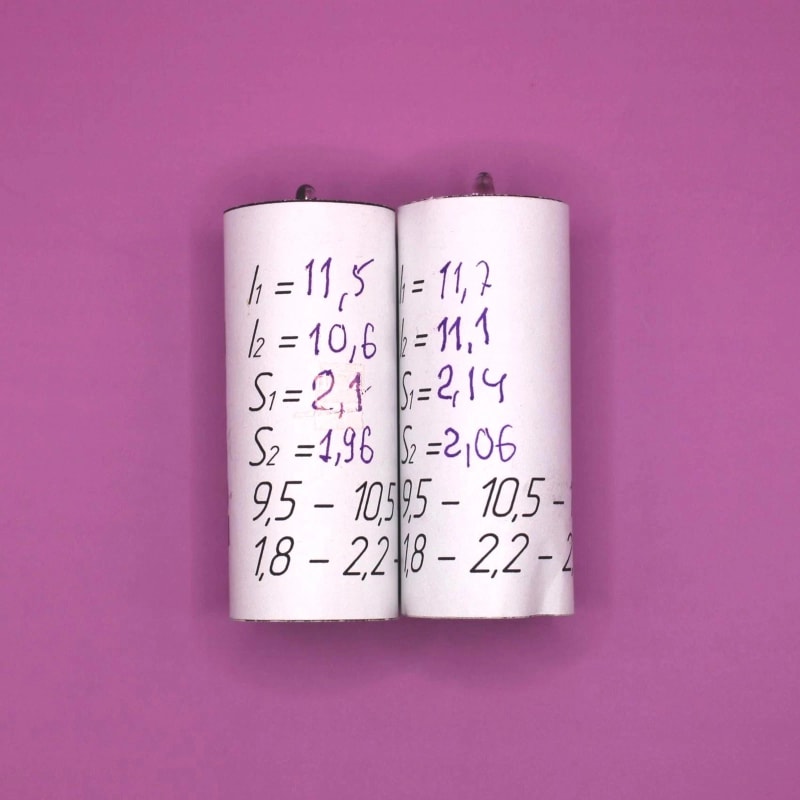 l1 = 11,5
l2 = 10,6
S1 = 2,1
S2 = 1,96
9,5 – 10,5
1,8 – 2,2 -
l1 = 11,7
l2 = 11,1
S1 = 2,14
S2 = 2,06
9,5 – 10,5 –
1,8 – 2,2 – 2